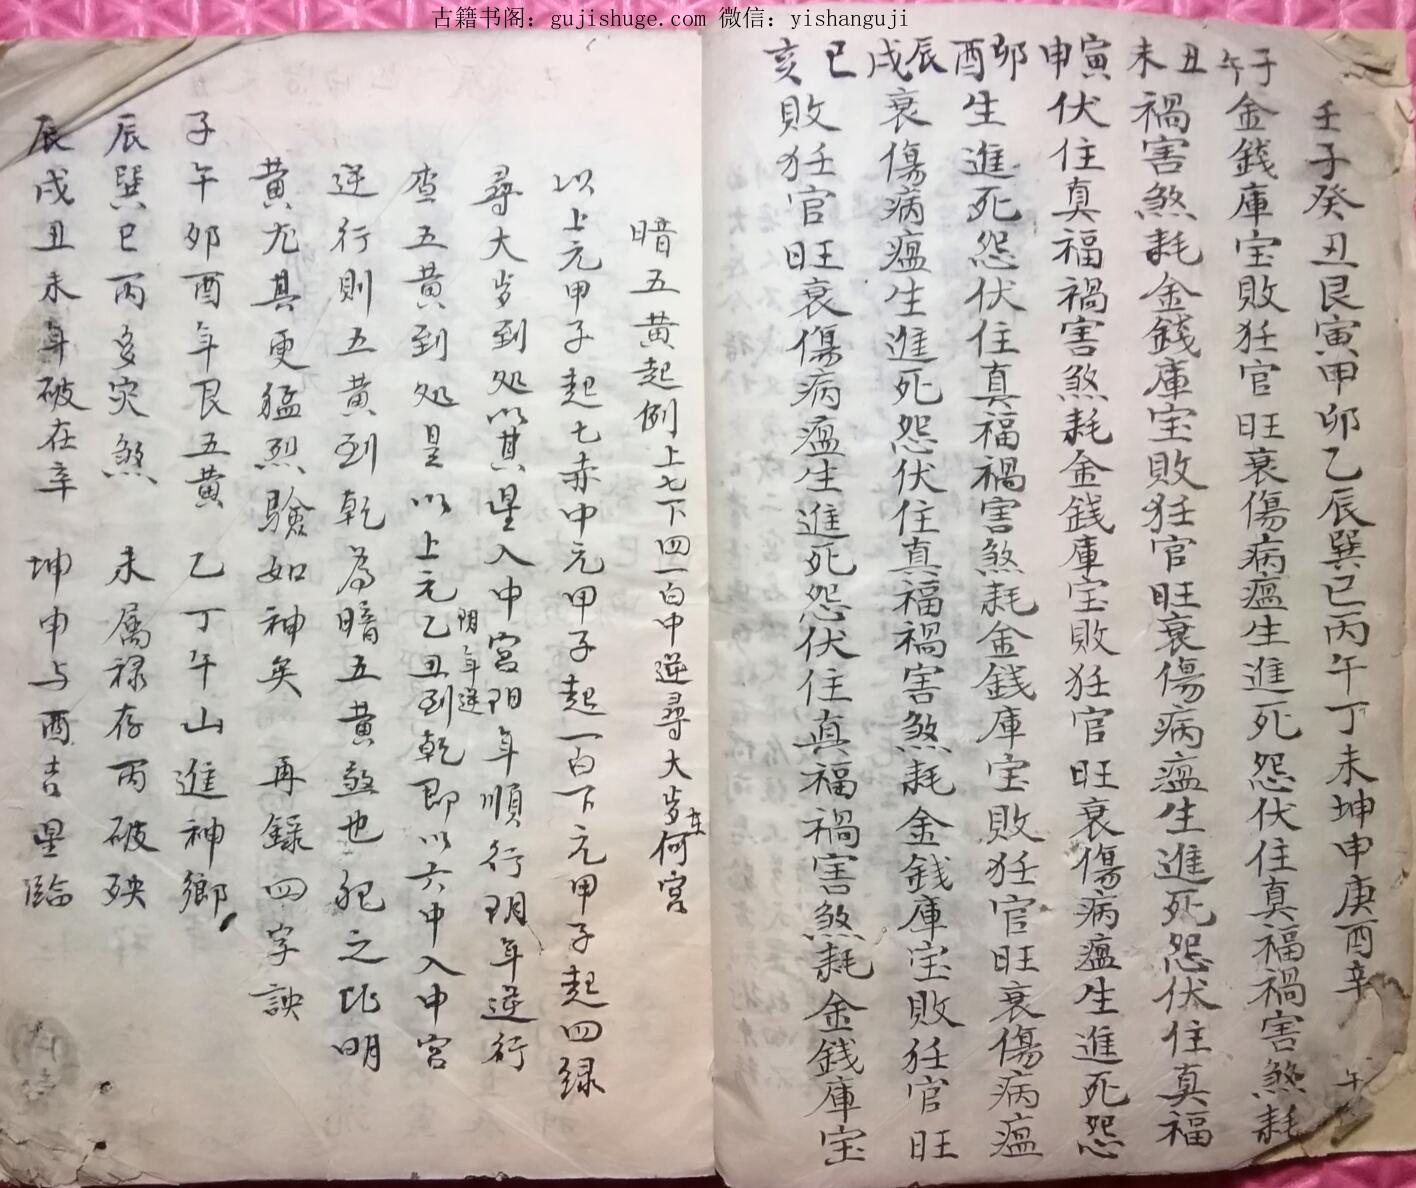 古籍书阁：gujishuge.com 微信：yishanguji
壬子癸丑艮寅甲卯乙辰巽巳丙午丁未坤申庚酉辛
子午 金錢庫宝敗狂官旺衰傷病瘟生進死怨伏住真福禍害煞耗
丑未 禍害煞耗金錢庫宝敗狂官旺衰傷病瘟生進死怨伏住真福
寅申 伏住真福禍害煞耗金錢庫宝敗狂官旺衰傷病瘟生進死怨
卯酉 生進死怨伏住真福禍害煞耗金錢庫宝敗狂官旺衰傷病瘟
辰戌 衰傷病瘟生進死怨伏住真福禍害煞耗金錢庫宝敗狂官旺
巳亥 敗狂官旺衰傷病瘟生進死怨伏住真福禍害煞耗金錢庫宝
暗五黄起例上七下四一白中逆尋大岁在何宫
以上元甲子起七赤中元甲子起一白下元甲子起四綠
尋大岁到処以其星入中宫阳年順行阴年逆行
阴年逆
查五黄到処是以上元乙丑到乾即以六中入中宫
逆行則五黄到乾為暗五黄煞也犯之比明
黄尤其更猛烈驗如神矣 再錄四字訣
子午卯酉年艮五黄 乙丁午山進神鄉
辰巽巳丙多灾煞 未属禄存丙破殃
辰戌丑未年破在辛 坤申与酉吉星臨